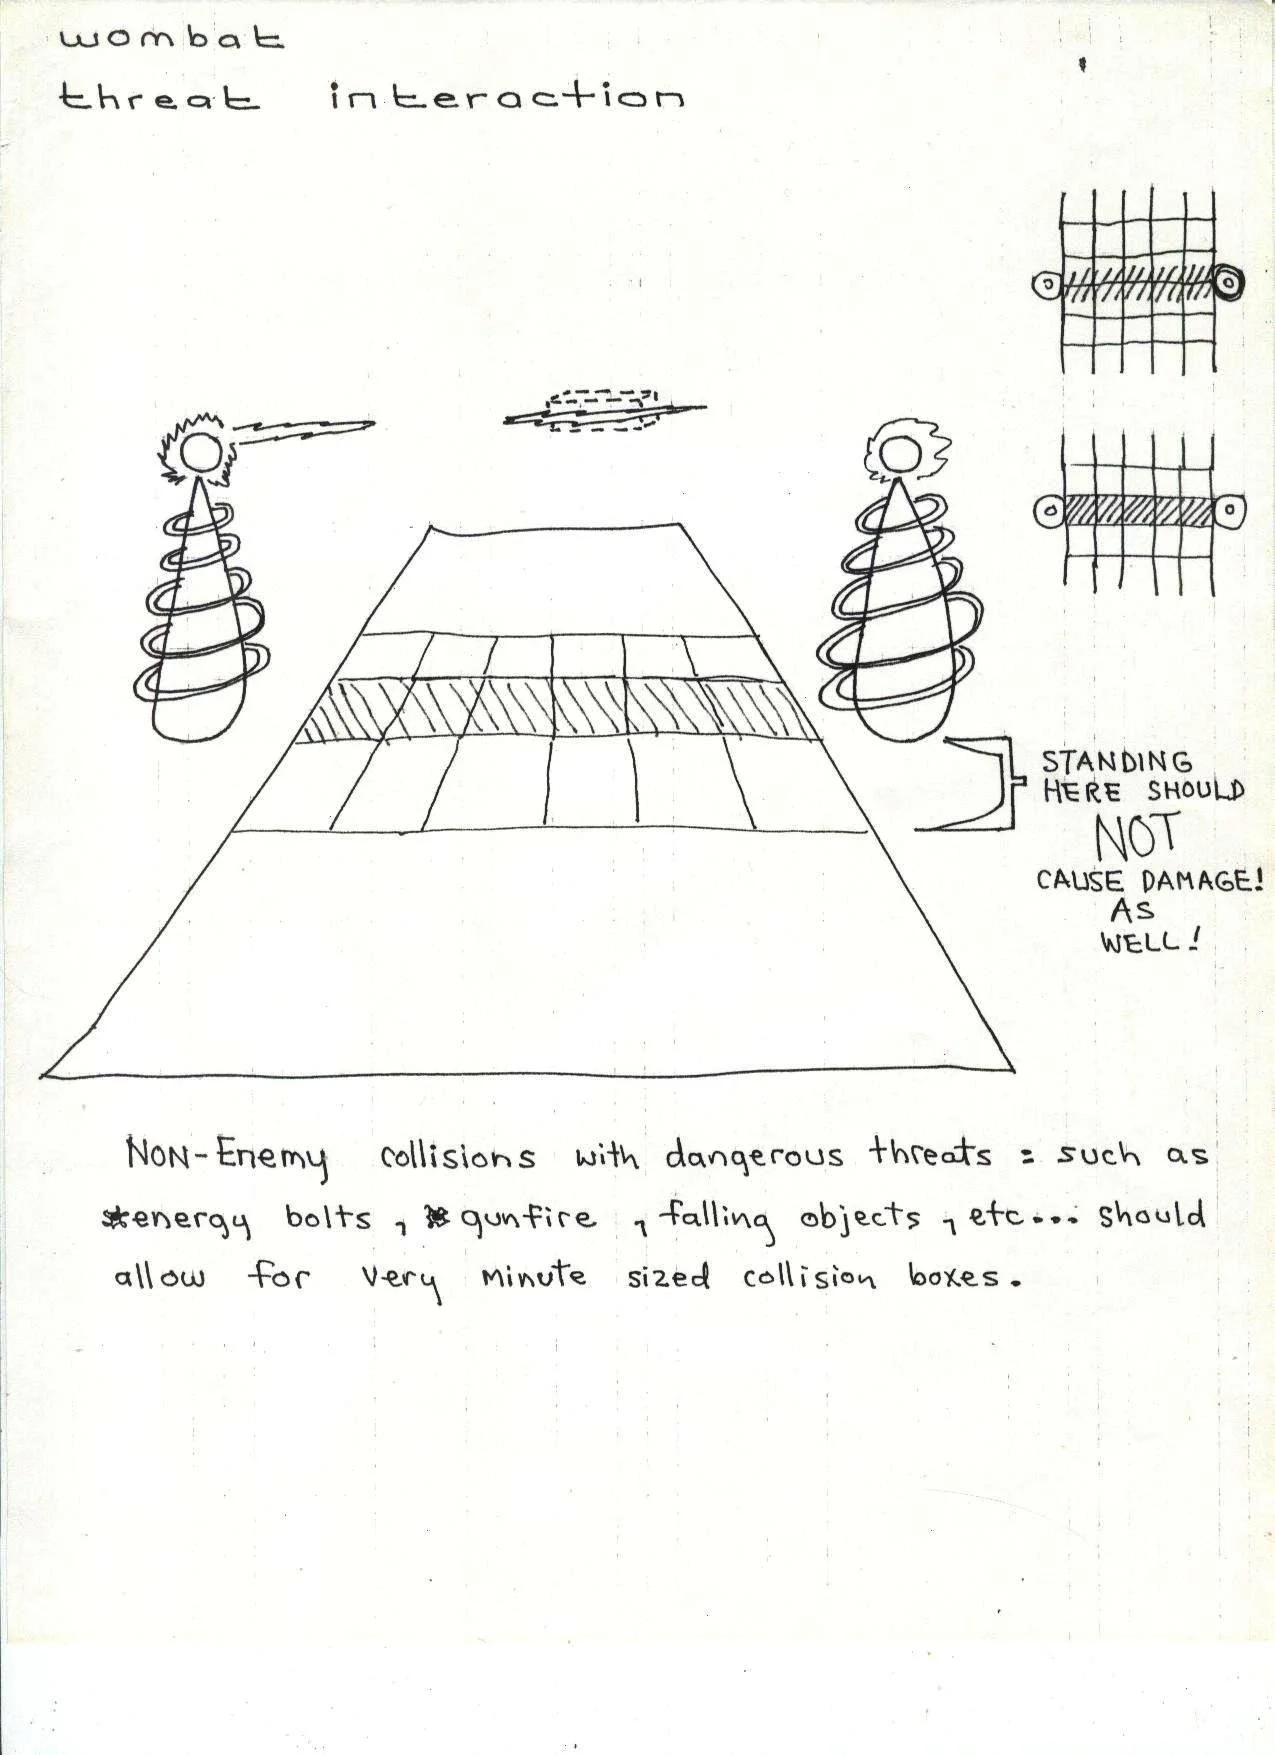 wombat
threat interaction
STANDING
HERE SHOULD
NOT
CAUSE DAMAGE!
AS
WELL!
NON-Enemy collisions with dangerous threats : such as
energy bolts, gunfire, falling objects, etc... should
allow for very minute sized collision boxes.